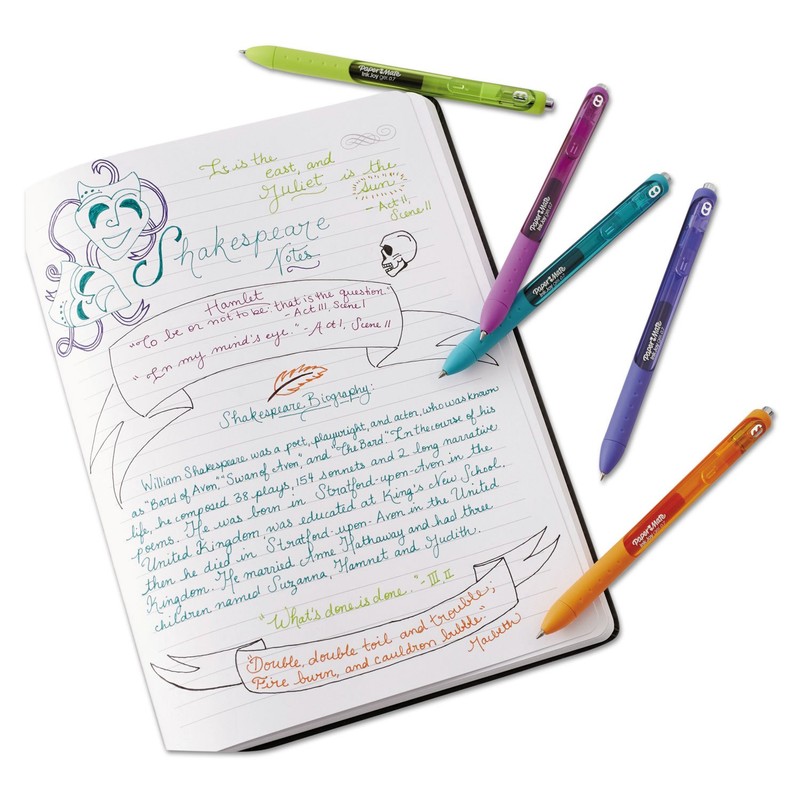 It is the
east, and
Juliet is the
sun
- Act II,
Scene II
Shakespeare
Notes
Hamlet
"To be or not to be: that is the question."
- Act III, Scene I
"In my mind's eye." - Act I, Scene II
Shakespeare Biography:
William Shakespeare was a poet, playwright, and actor, who was known
as "Bard of Avon," "Swan of Avon", and "The Bard." In the course of his
life, he composed 38 plays, 154 sonnets and 2 long narrative
poems. He was born in Stratford-upon-Avon in the
United Kingdom, was educated at King's New School,
then he died in Stratford-upon-Avon in the United
Kingdom. He married Anne Hathaway and had three
children named Suzanna, Hamnet and Judith.
"What's done is done." - III.II
"Double, double toil and trouble;
Fire burn, and cauldron bubble."
Macbeth
Paper Mate
InkJoy gel 0.7
Paper Mate
InkJoy gel 0.7
Paper Mate
InkJoy gel 0.7
Paper Mate
InkJoy gel 0.7
Paper Mate
InkJoy gel 0.7